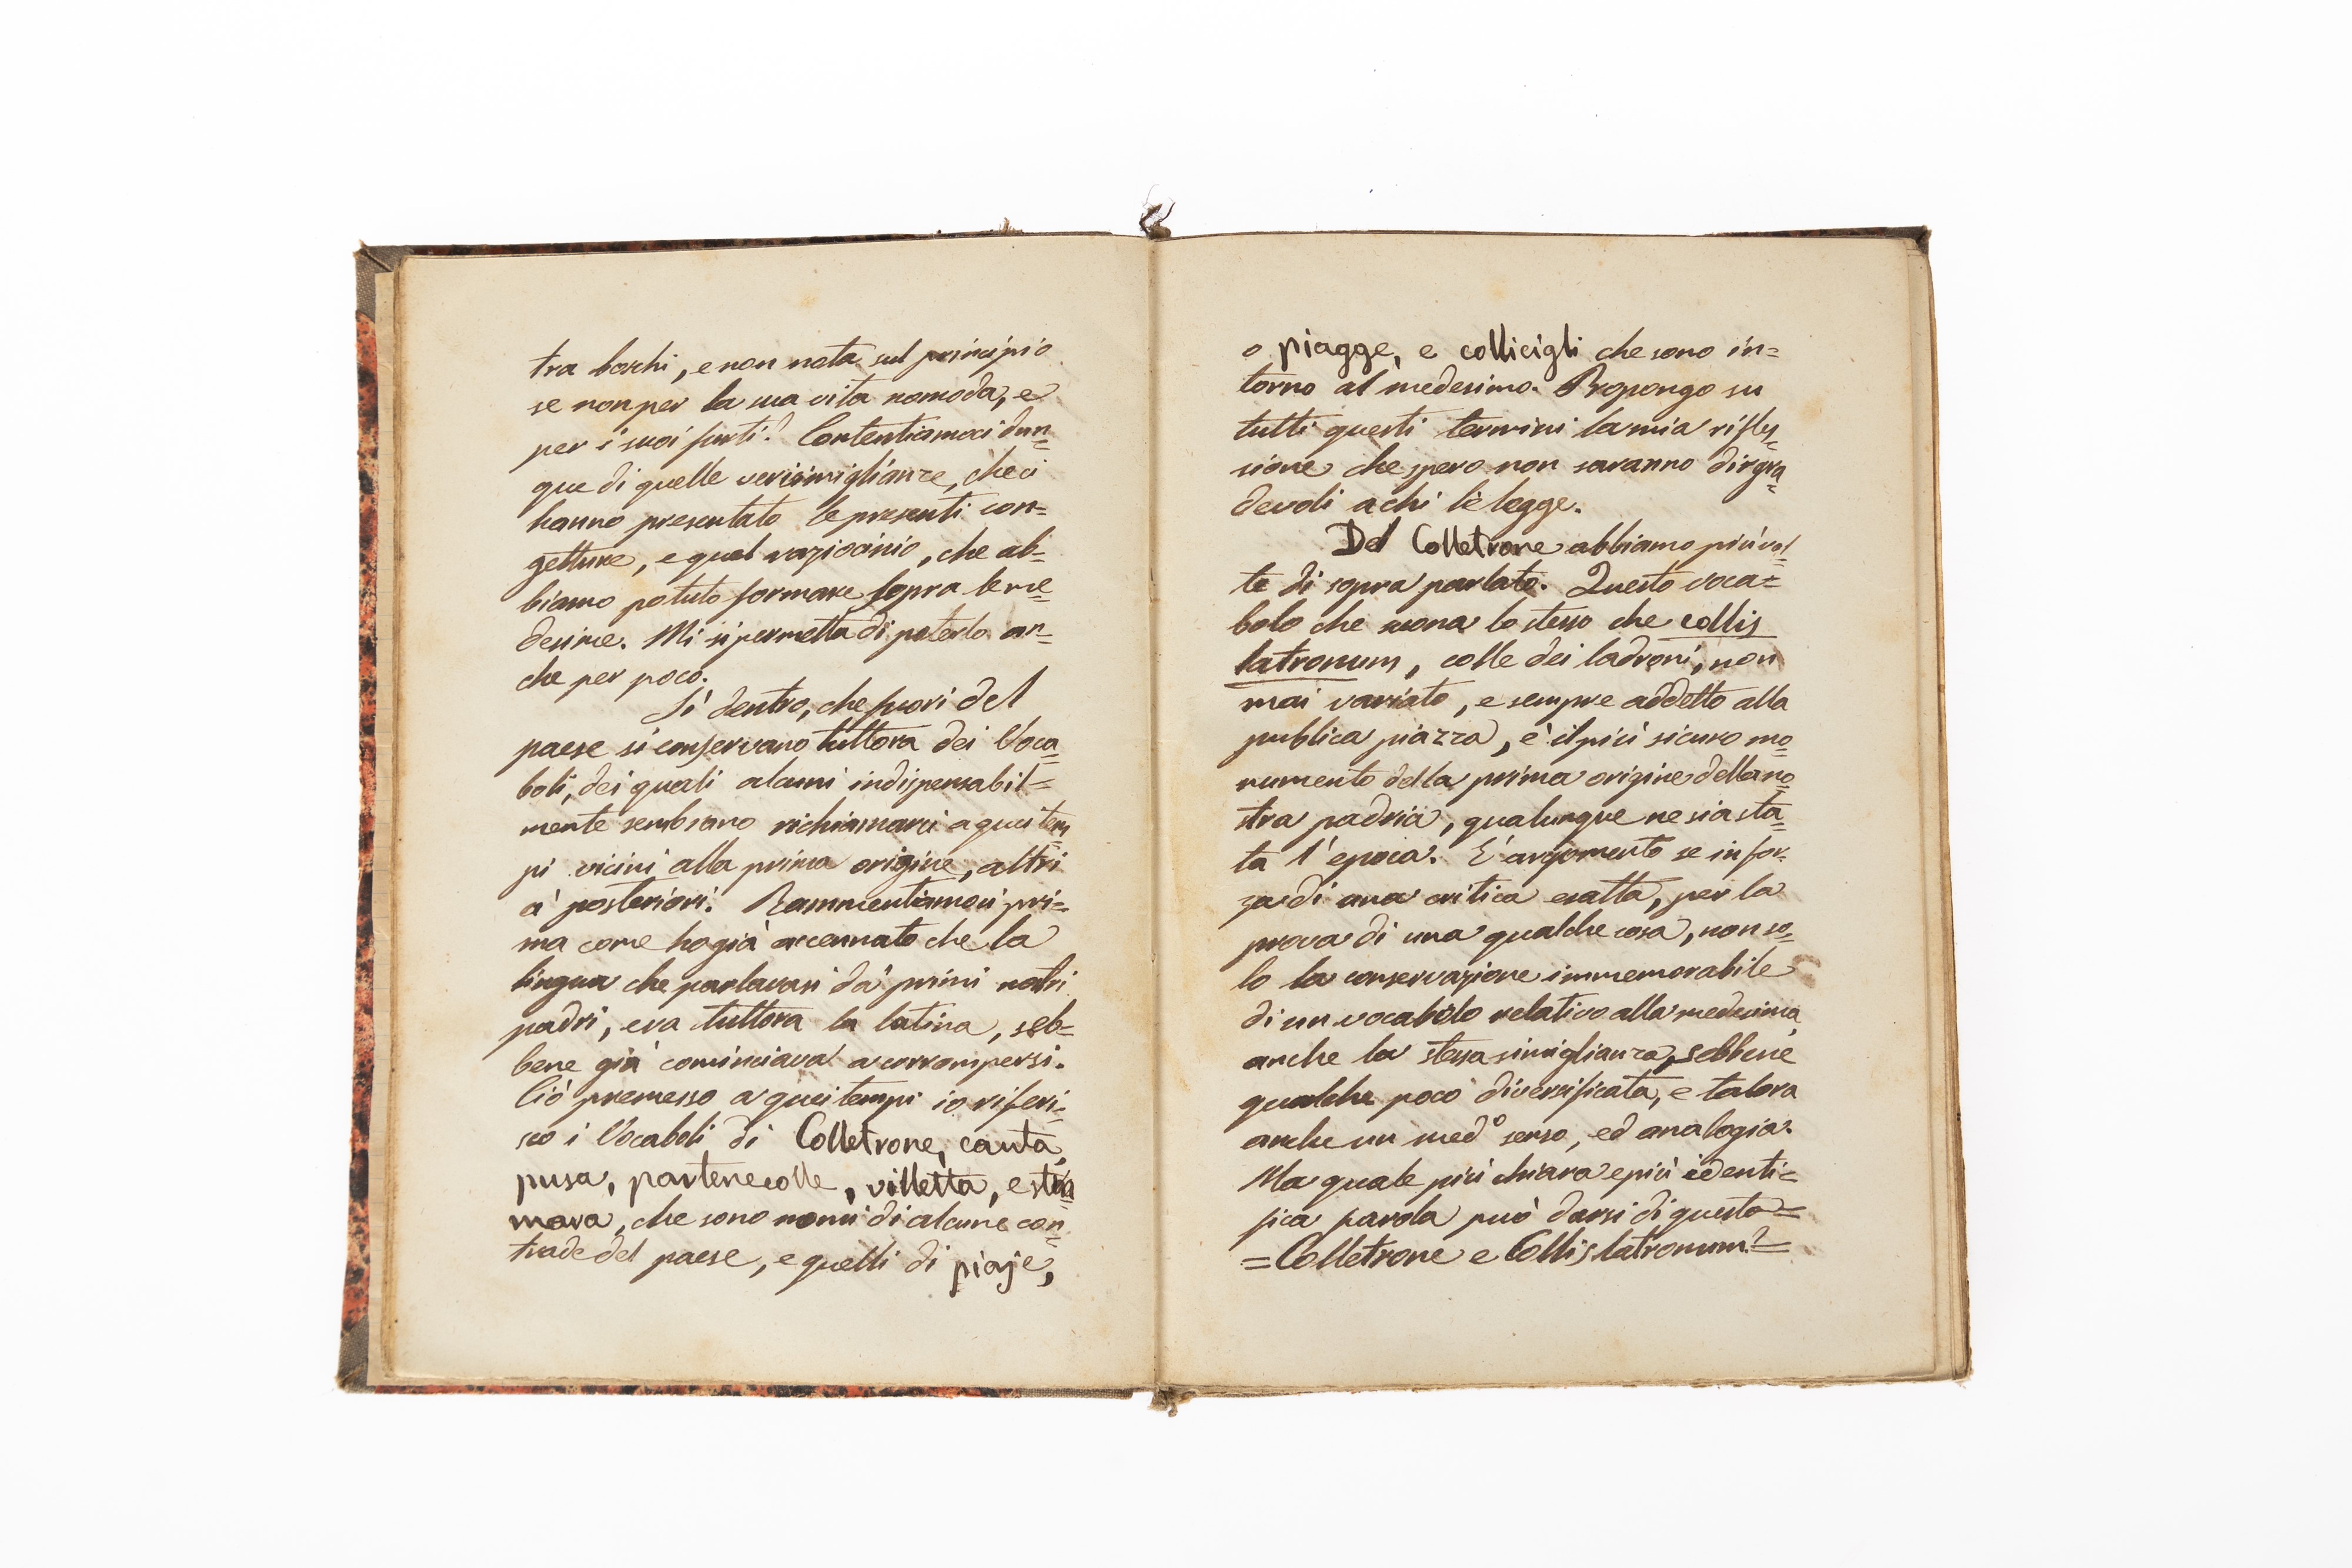 tra boschi, e non nata sul principio
se non per la sua vita nomoda, e
per i suoi furti? Contentiamoci dun=
que di quelle verisimiglianze, che ci
hanno presentato le presenti con=
getture, e quel raziocinio, che ab=
biamo potuto formare sopra le me=
desime. Mi si permetta di poterlo an=
che per poco.
Sì dentro, che fuori del
paese si conservano tuttora dei Voca=
boli, dei quali alcuni indispensabil=
mente sembrano richiamarci a quei tem=
pi vicini alla prima origine, altri
a' posteriori. Rammentiamoci pri=
ma come ho già accennato che la
lingua che parlavasi da' primi nostri
padri, era tuttora la latina, seb=
bene già cominciava a corrompersi.
Ciò premesso a quei tempi io riferi=
sco i Vocaboli di Colletrone, canta,
pusa, partenecolle, villetta, e
mara, che sono nomi di alcune con=
trade del paese, e quelli di piaje,
o piagge, e collicigli che sono in=
torno al medesimo. Propongo su
tutti questi termini la mia rifles=
sione che spero non saranno disgra=
devoli a chi le legge.
Del Colletrone abbiamo più vol=
te di sopra parlato. Questo voca=
bolo che suona lo stesso che collis
latronum, colle dei ladroni, non
mai variato, e sempre addetto alla
publica piazza, è il più sicuro mo=
numento della prima origine della no=
stra padria, qualunque ne sia sta=
ta l'epoca. È argomento se in for=
za di una critica esatta, per la
prova di una qualche cosa, non so=
lo la conservazione immemorabile
di un vocabolo relativo alla medesima,
anche la stessa simiglianza, sebbene
qualche poco diversificata, e talora
anche un med.º senso, ed analogia.
Ma quale più chiara e più identi=
fica parola può darsi di questa=
=Colletrone e Collis latronum?=